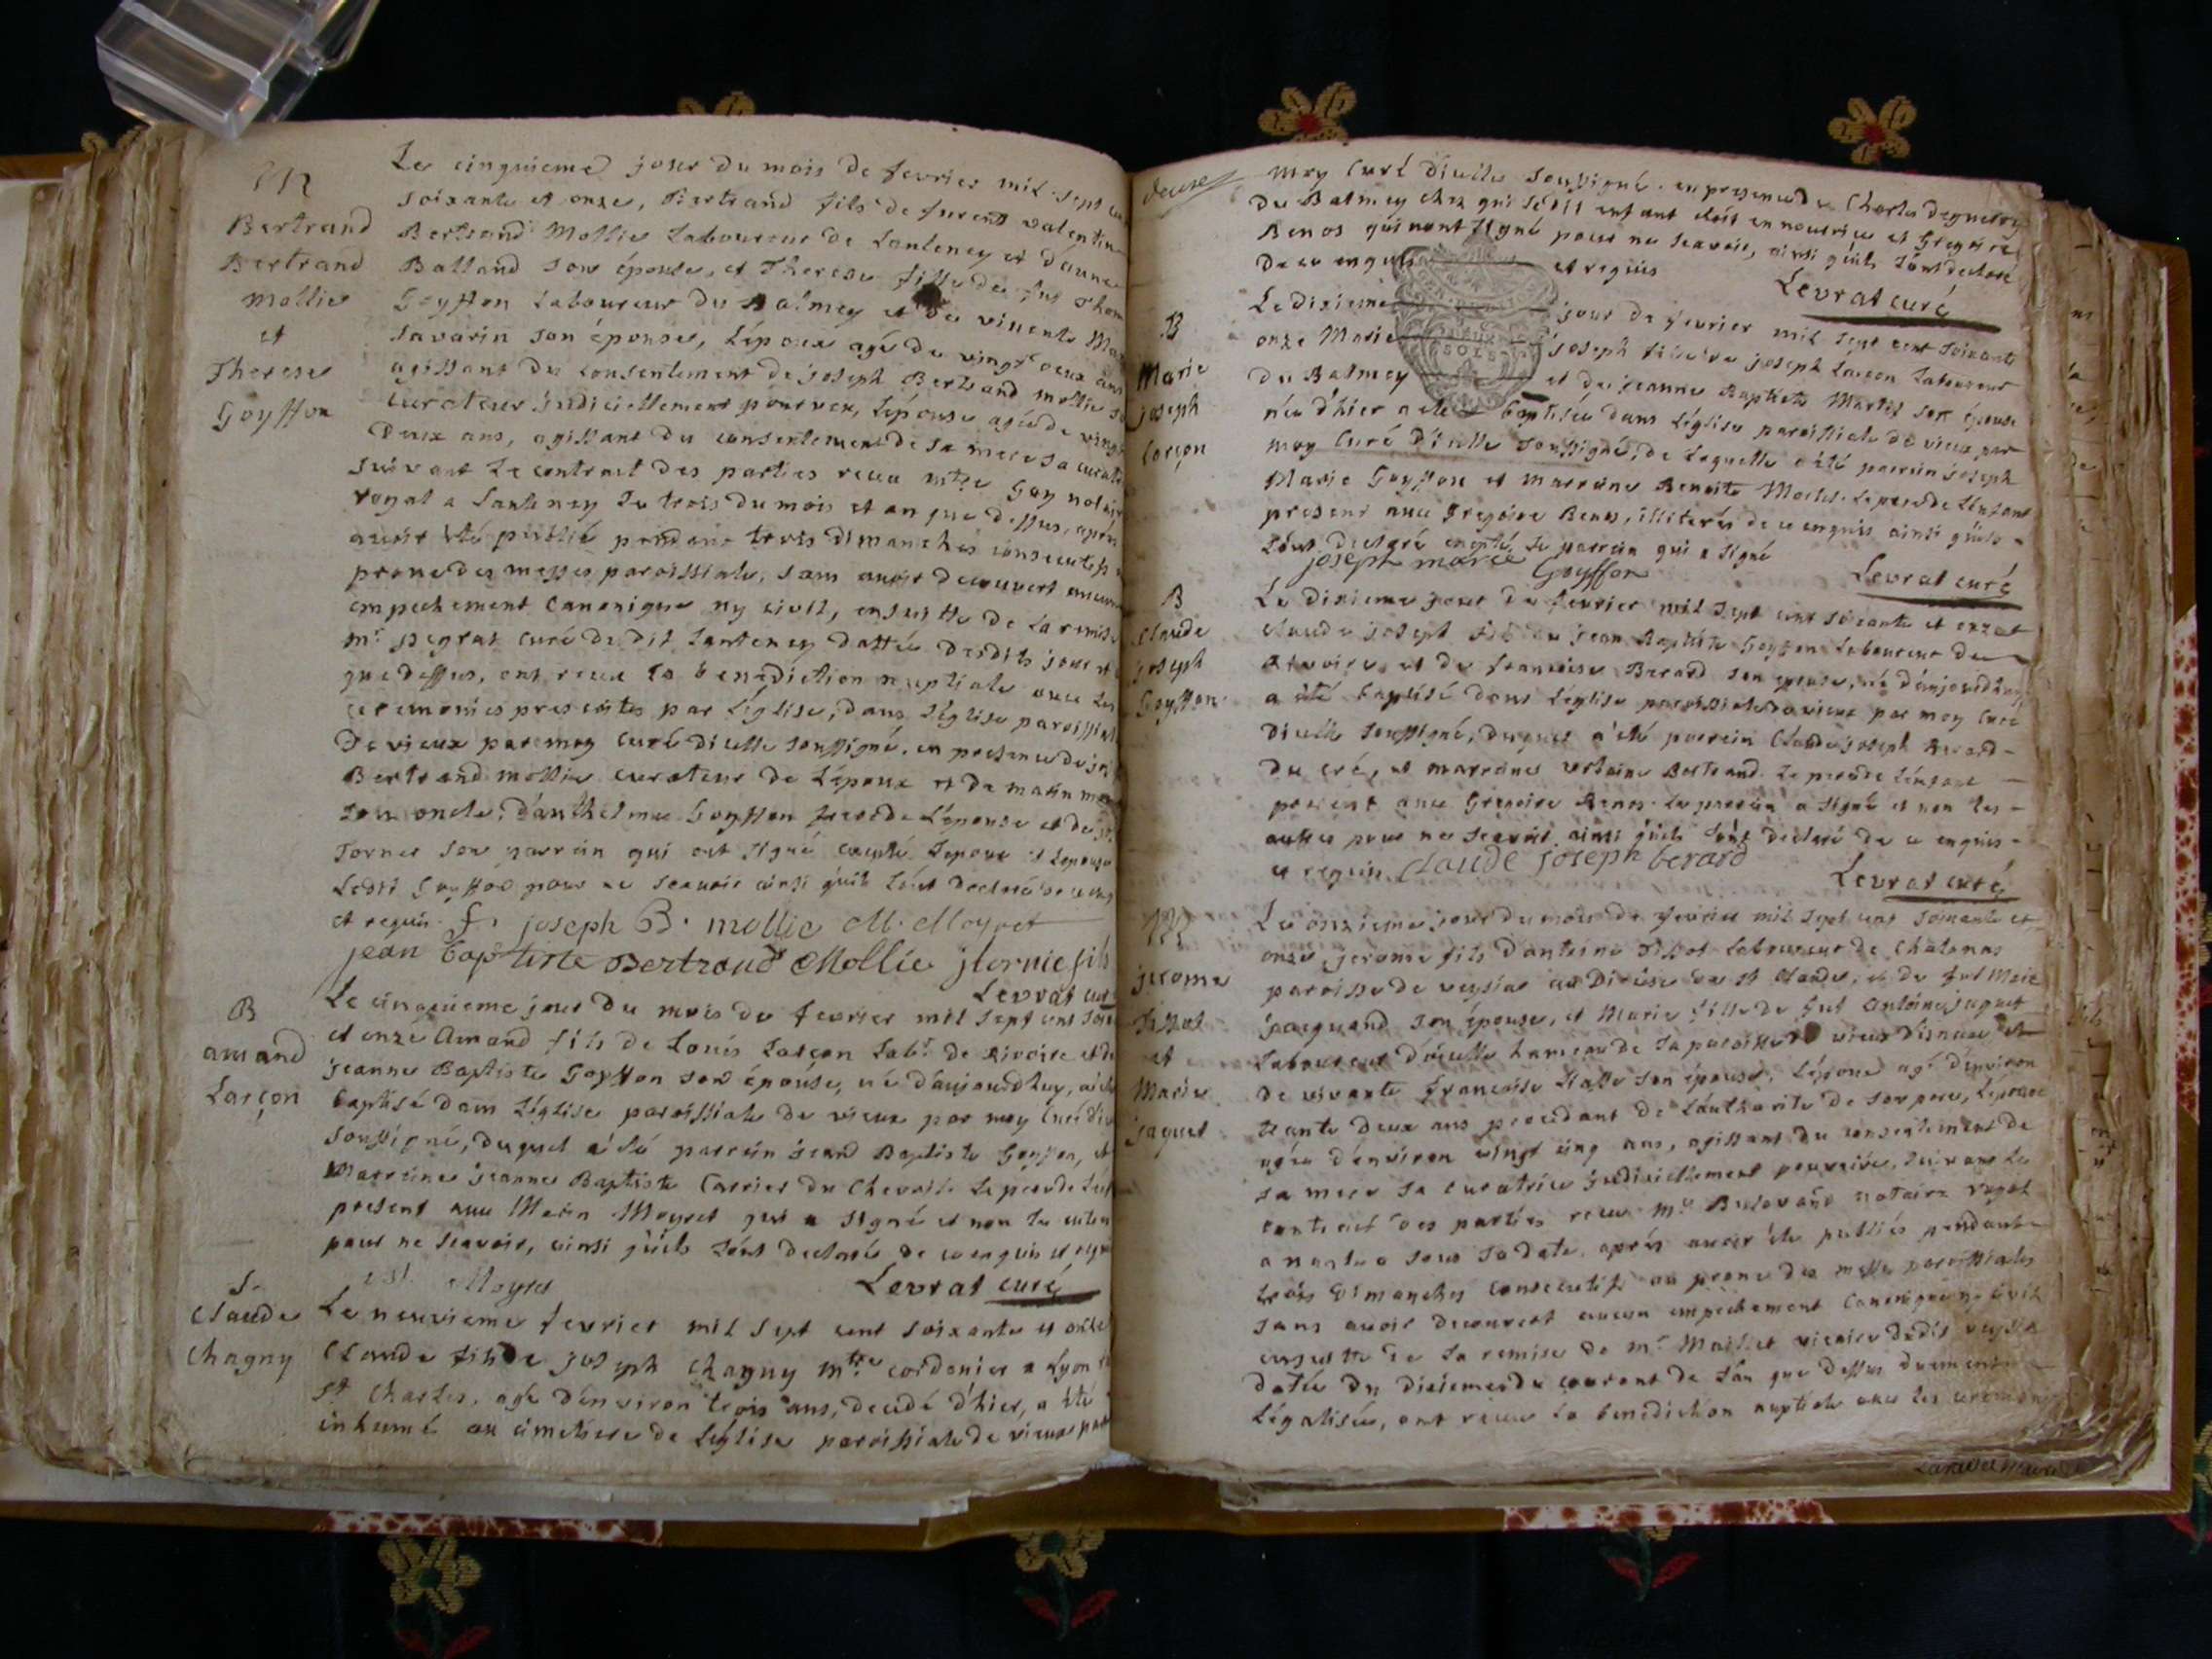 M
Bertrand
Bertrand
mollie
et
Therese
Goyffon
Le cinquieme jour du mois de fevrier mil sept
soixante et onze, Bertrand fils de furent valentin
Bertrand Mollie Laboureur de Lanteney et d'anne
Balland son épouse, et Therese fille de fut
Goyffon Laboureur du Balmey et de vivente
savarin son épouse, L'époux agé de vingt deux ans
agissant du consentement de joseph Bertrand mollie
curateur judiciellement pourveu, L'épouse agée de vingt
Deux ans, agissant du consentement de sa mere sa
suivant Le contract des parties receu mtre Goy
royal a Lanteney Le trois du mois et an que dessus, après
avoir été publié pendant trois dimanches consecutifs
prone des messes paroissiale, sans avoir decouvert
empechement Canonique ny civil, ensuitte de La remise
mr curé dudit Lanteney dattée desdits jour et
que dessus, ont receu La benediction nuptiale avec Les
ceremonies prescrites par L'église, dans L'église
De vieux par moy curé d'icelle soussigné, en presence de
Bertrand mollie curateur de L'époux et de matin
son oncle, d'anthelme Goyffon frere de L'épouse et de
Tornier son parrein qui ont signé excepté L'epoux et
Ledit Goyffon pour ne scavoir ainsi qu'ils L'ont declaré
et requis. joseph B. mollie M. Moyret
jean baptiste Bertrand Mollie jtornie fils
Levrat
B
amand
Larçon
Le cinquieme jour du mois de fevrier mil sept cent
et onze Amand fils de Louis Larçon Labr. de Rivoire et de
jeanne Baptiste Goyffon son épouse, né d'aujourdhuy, a
baptisé dans L'église paroissiale de vieux par moy curé
soussigné, duquel a été parrein jeand Baptiste Goyffon, et
Marreine jeanne Baptiste Carrier du Chevril. Le pere de
present avec Matin Moyret qui a signé et non
pour ne scavoir, ainsi qu'ils L'ont declaré de ce enquis et
Moyret
Levrat curé
S.
Claude
Chagny
Le neuvieme fevrier mil sept cent soixante et onze
Claude fils de joseph Chagny mtre cordonier a Lyon
St. Charles, agé d'environ trois ans, decedé d'hier, a été
inhumé au cimetiere de L'église paroissiale de vieux
moy Curé d'icelle soussigné. en presence de Charle
du Balmey chez qui Ledit enfant étoit en nourrice et Gregoire
Benos qui n'ont signé pour ne scavoir, ainsi qu'ils L'ont declaré
de ce enquis et requis
Levrat curé
B
Marie
joseph
Larçon
Le dixieme jour de fevrier mil sept cent soixante
onze Marie joseph fille de joseph Larçon Laboureur
du Balmey et de jeanne Baptiste son épouse
née d'hier a été baptisée dans L'église paroissiale de vieux par
moy Curé d'icelle soussigné, de Laquelle a été parrein joseph
Marie Goyffon et marreine Benoite Le pere de L'enfant
present avec Gregoire Benos, illiterés de ce enquis ainsi qu'ils
L'ont declaré excepté Le parrein qui a signé
joseph marie Goyffon
Levrat curé
B
Claude
joseph
Goyffon
Le dixieme jour de fevrier mil sept cent soixante et onze
claude joseph fils de jean Baptiste Goyffon Laboureur de
Rivoire et de francoise Berard son epouse, né d'aujourdhuy
a été baptisé dans L'église paroissiale de vieux par moy Curé
d'icelle soussigné, duquel a été parrein Claude joseph Berard
du cré, et marreine Bertrand. Le pere de L'enfant
present avec Gregoire Benos. Le parrein a signé et non Les
autres pour ne scavoir ainsi qu'ils L'ont declaré de ce enquis
et requis. Claude joseph berard
Levrat curé
M
jerome
et
Marie
jaquet
Le onzieme jour du mois de fevrier mil sept cent soixante et
onze, jerome fils d'antoine Laboureur de Chatonas
paroisse de au Diocese de St Claude, et de fut
son épouse, et Marie fille de fut antoine jaquet
Laboureur
de vivante francoise son épouse, L'époux agé d'environ
trante deux ans procedant de L'authorité de son pere, L'epouse
agée d'environ vingt cinq ans, agissant du consentement de
sa mere sa curatrice judiciellement pourveüe, suivant Le
contract des parties receu mr notaire royal
a sous sa date, aprés avoir été publiés pendant
trois Dimanches consecutifs au prone des messes paroissiales
sans avoir decouvert aucun empechement Canonique ny civil
ensuitte de La remise de mr vicaire dudit
datée du dixieme du courant de L'an que dessus duement
Légalisée, ont receu La benediction nuptiale avec Les